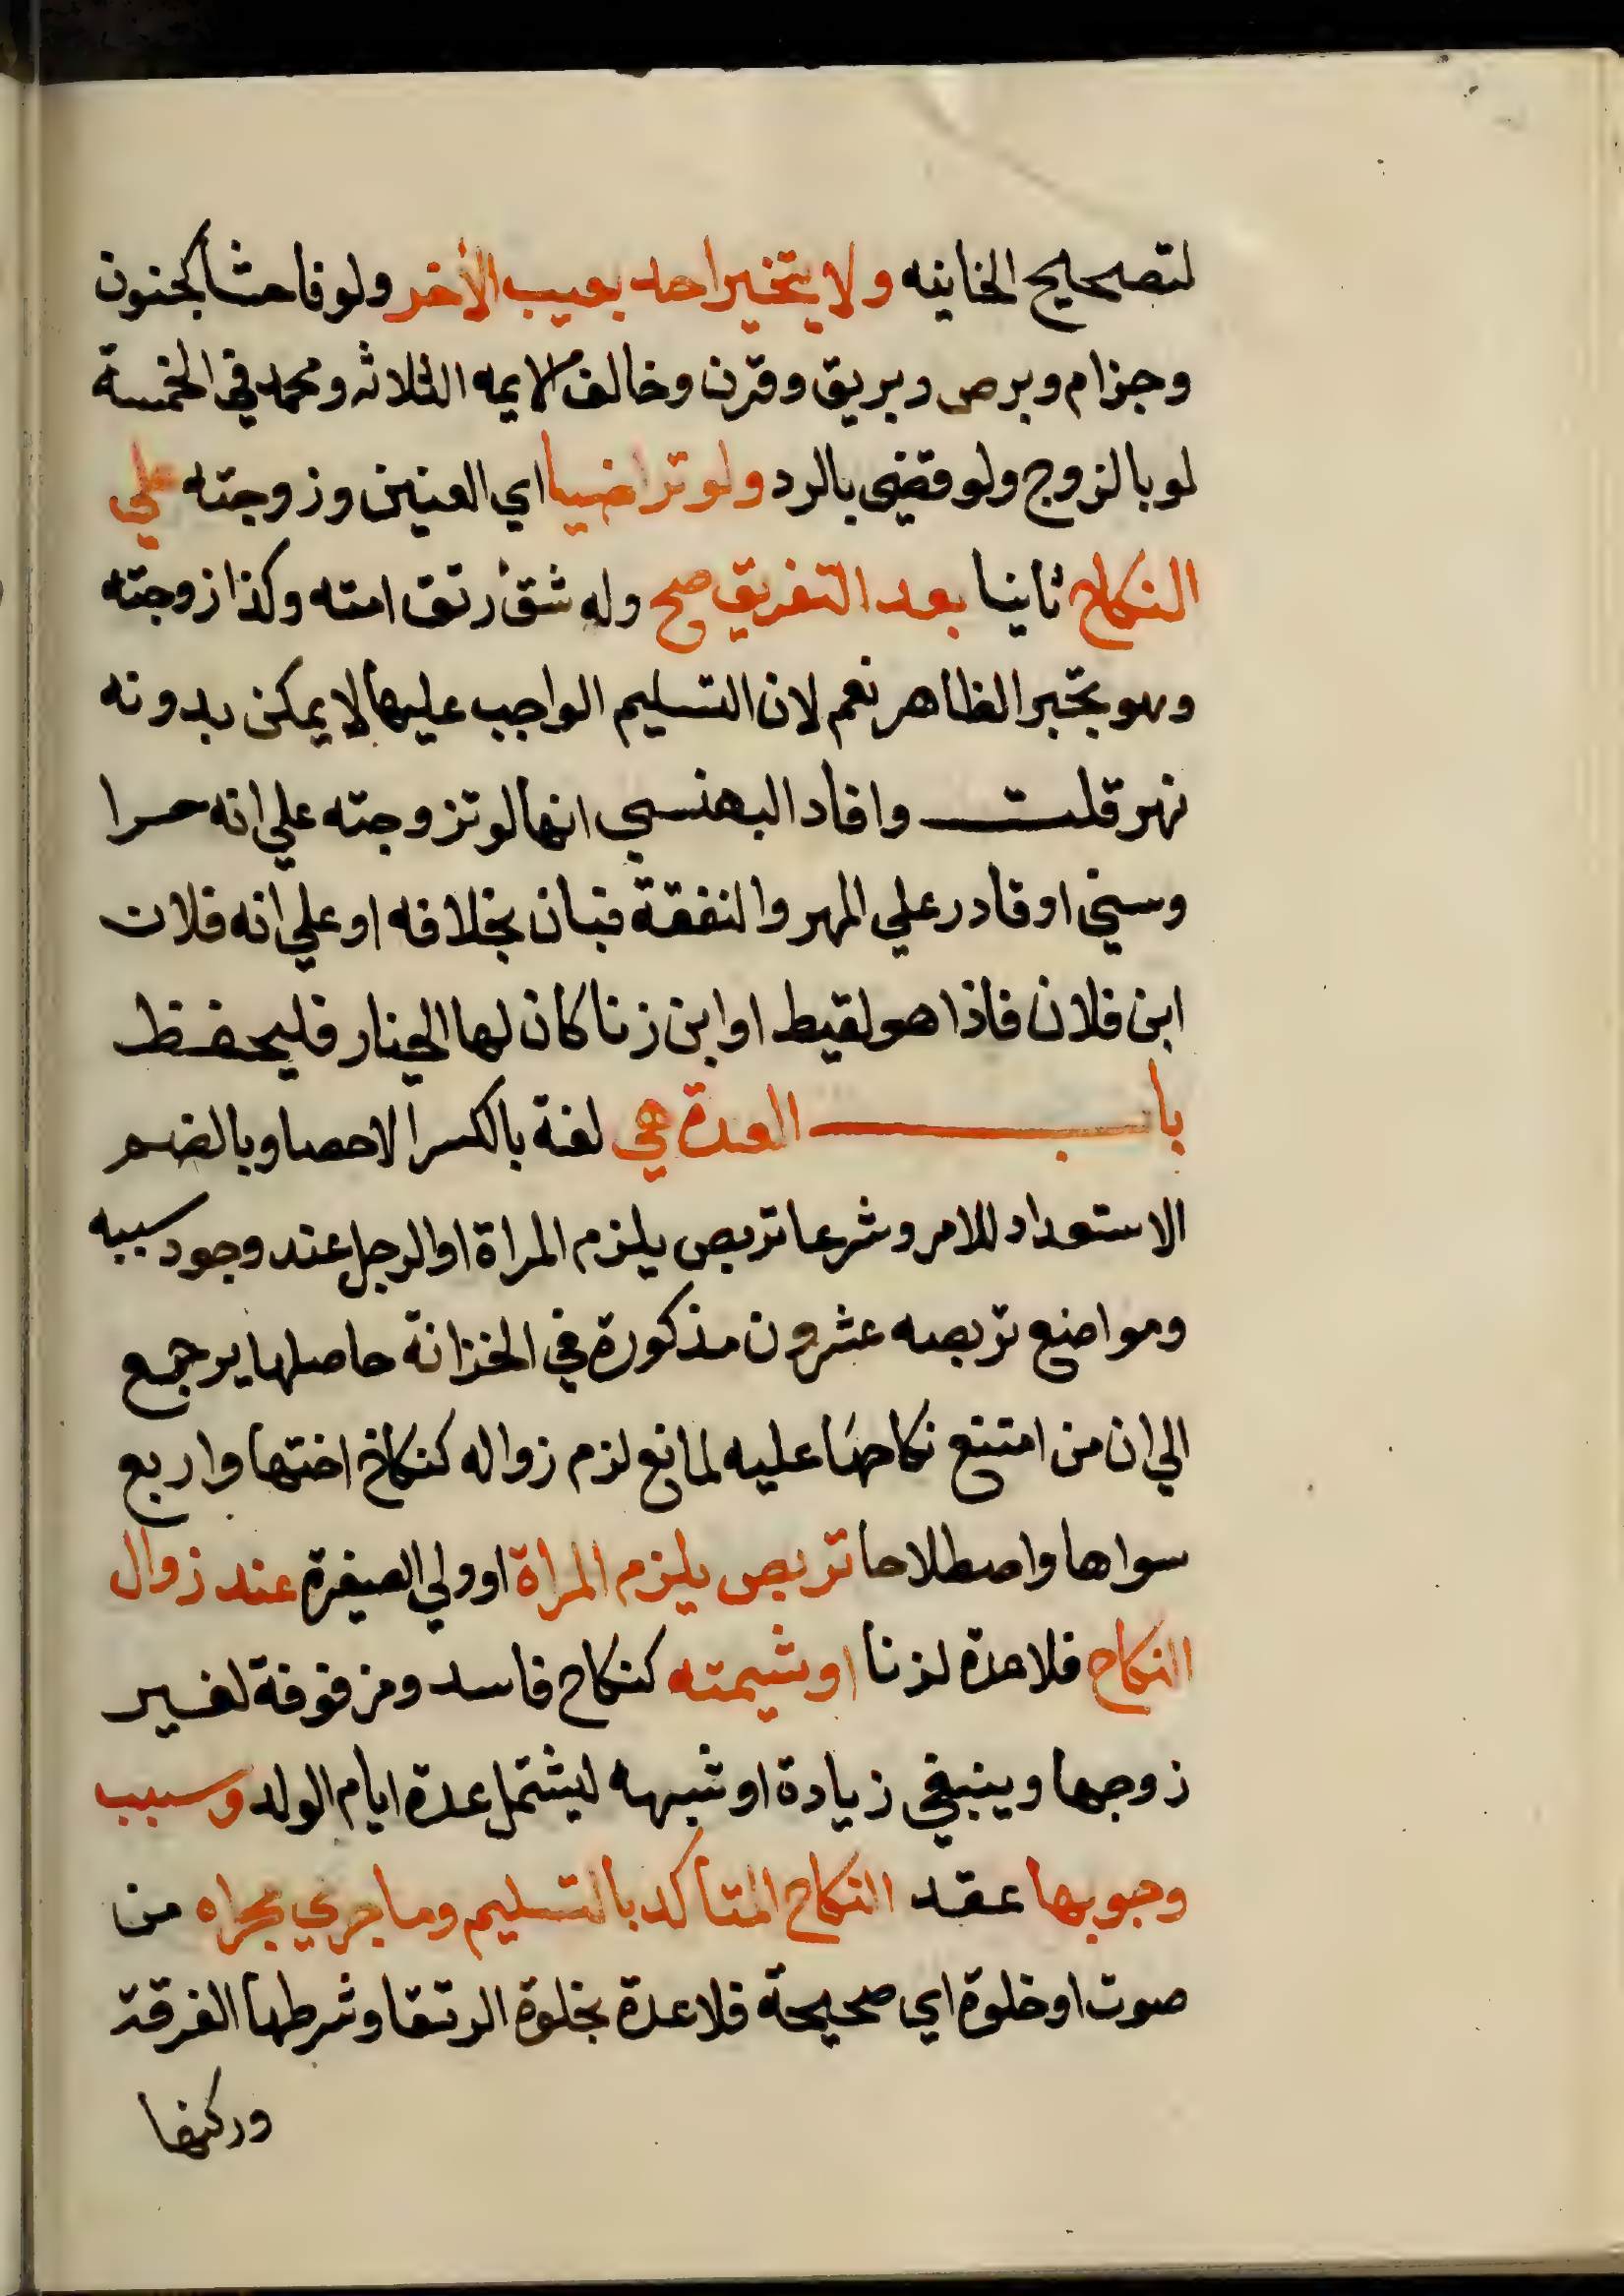 لتصحيح الخانيه ولا يتخير احد بعيب الأخر ولو فاحشا كجنون
وجزام وبرص وبريق وقرن وخالف الايمه الثلاثه ومحمد في الخمسة
لو بالزوج ولو قضى بالرد ولو تراضيا اي العنين وزوجته علي
النكاح ثانيا بعد التفريق صح وله شق رتق امته وكذا زوجته
وهو تجبر الظاهر نعم لان التسليم الواجب عليها لا يمكن بدونه
نهر قلت وافاد البهنسي انها لو تزوجته علي انه حرا
وسني او قادر علي المهر والنفقة فبان بخلافه او علي انه فلان
ابن فلان فاذا هو لقيط او ابن زنا كان لها الخيار فليحفظ
باب العدة هي لغة بالكسر الاحصا وبالضم
الاستعداد للامر وشرعا تربص يلزم المراة او الرجل عند وجود سببه
ومواضع تربصه عشرون مذكورة في الخزانة حاصلها يرجع
الي ان من امتنع نكاحها عليه لمانع لزم زواله كنكاح اختها واربع
سواها واصطلاحا تربص يلزم المراة او ولي الصغيرة عند زوال
النكاح فلا عدة لزنا او شيمته كنكاح فاسد ومزفوفة لغير
زوجها وينبغي زيادة او شبهه ليشتمل عدة ايام الولد وسبب
وجوبها عقد النكاح المتاكد بالتسليم وما جري مجراه من
صوت او خلوة اي صحيحة فلا عدة بخلوة الرتقا وشرطها الفرقة
وركنها